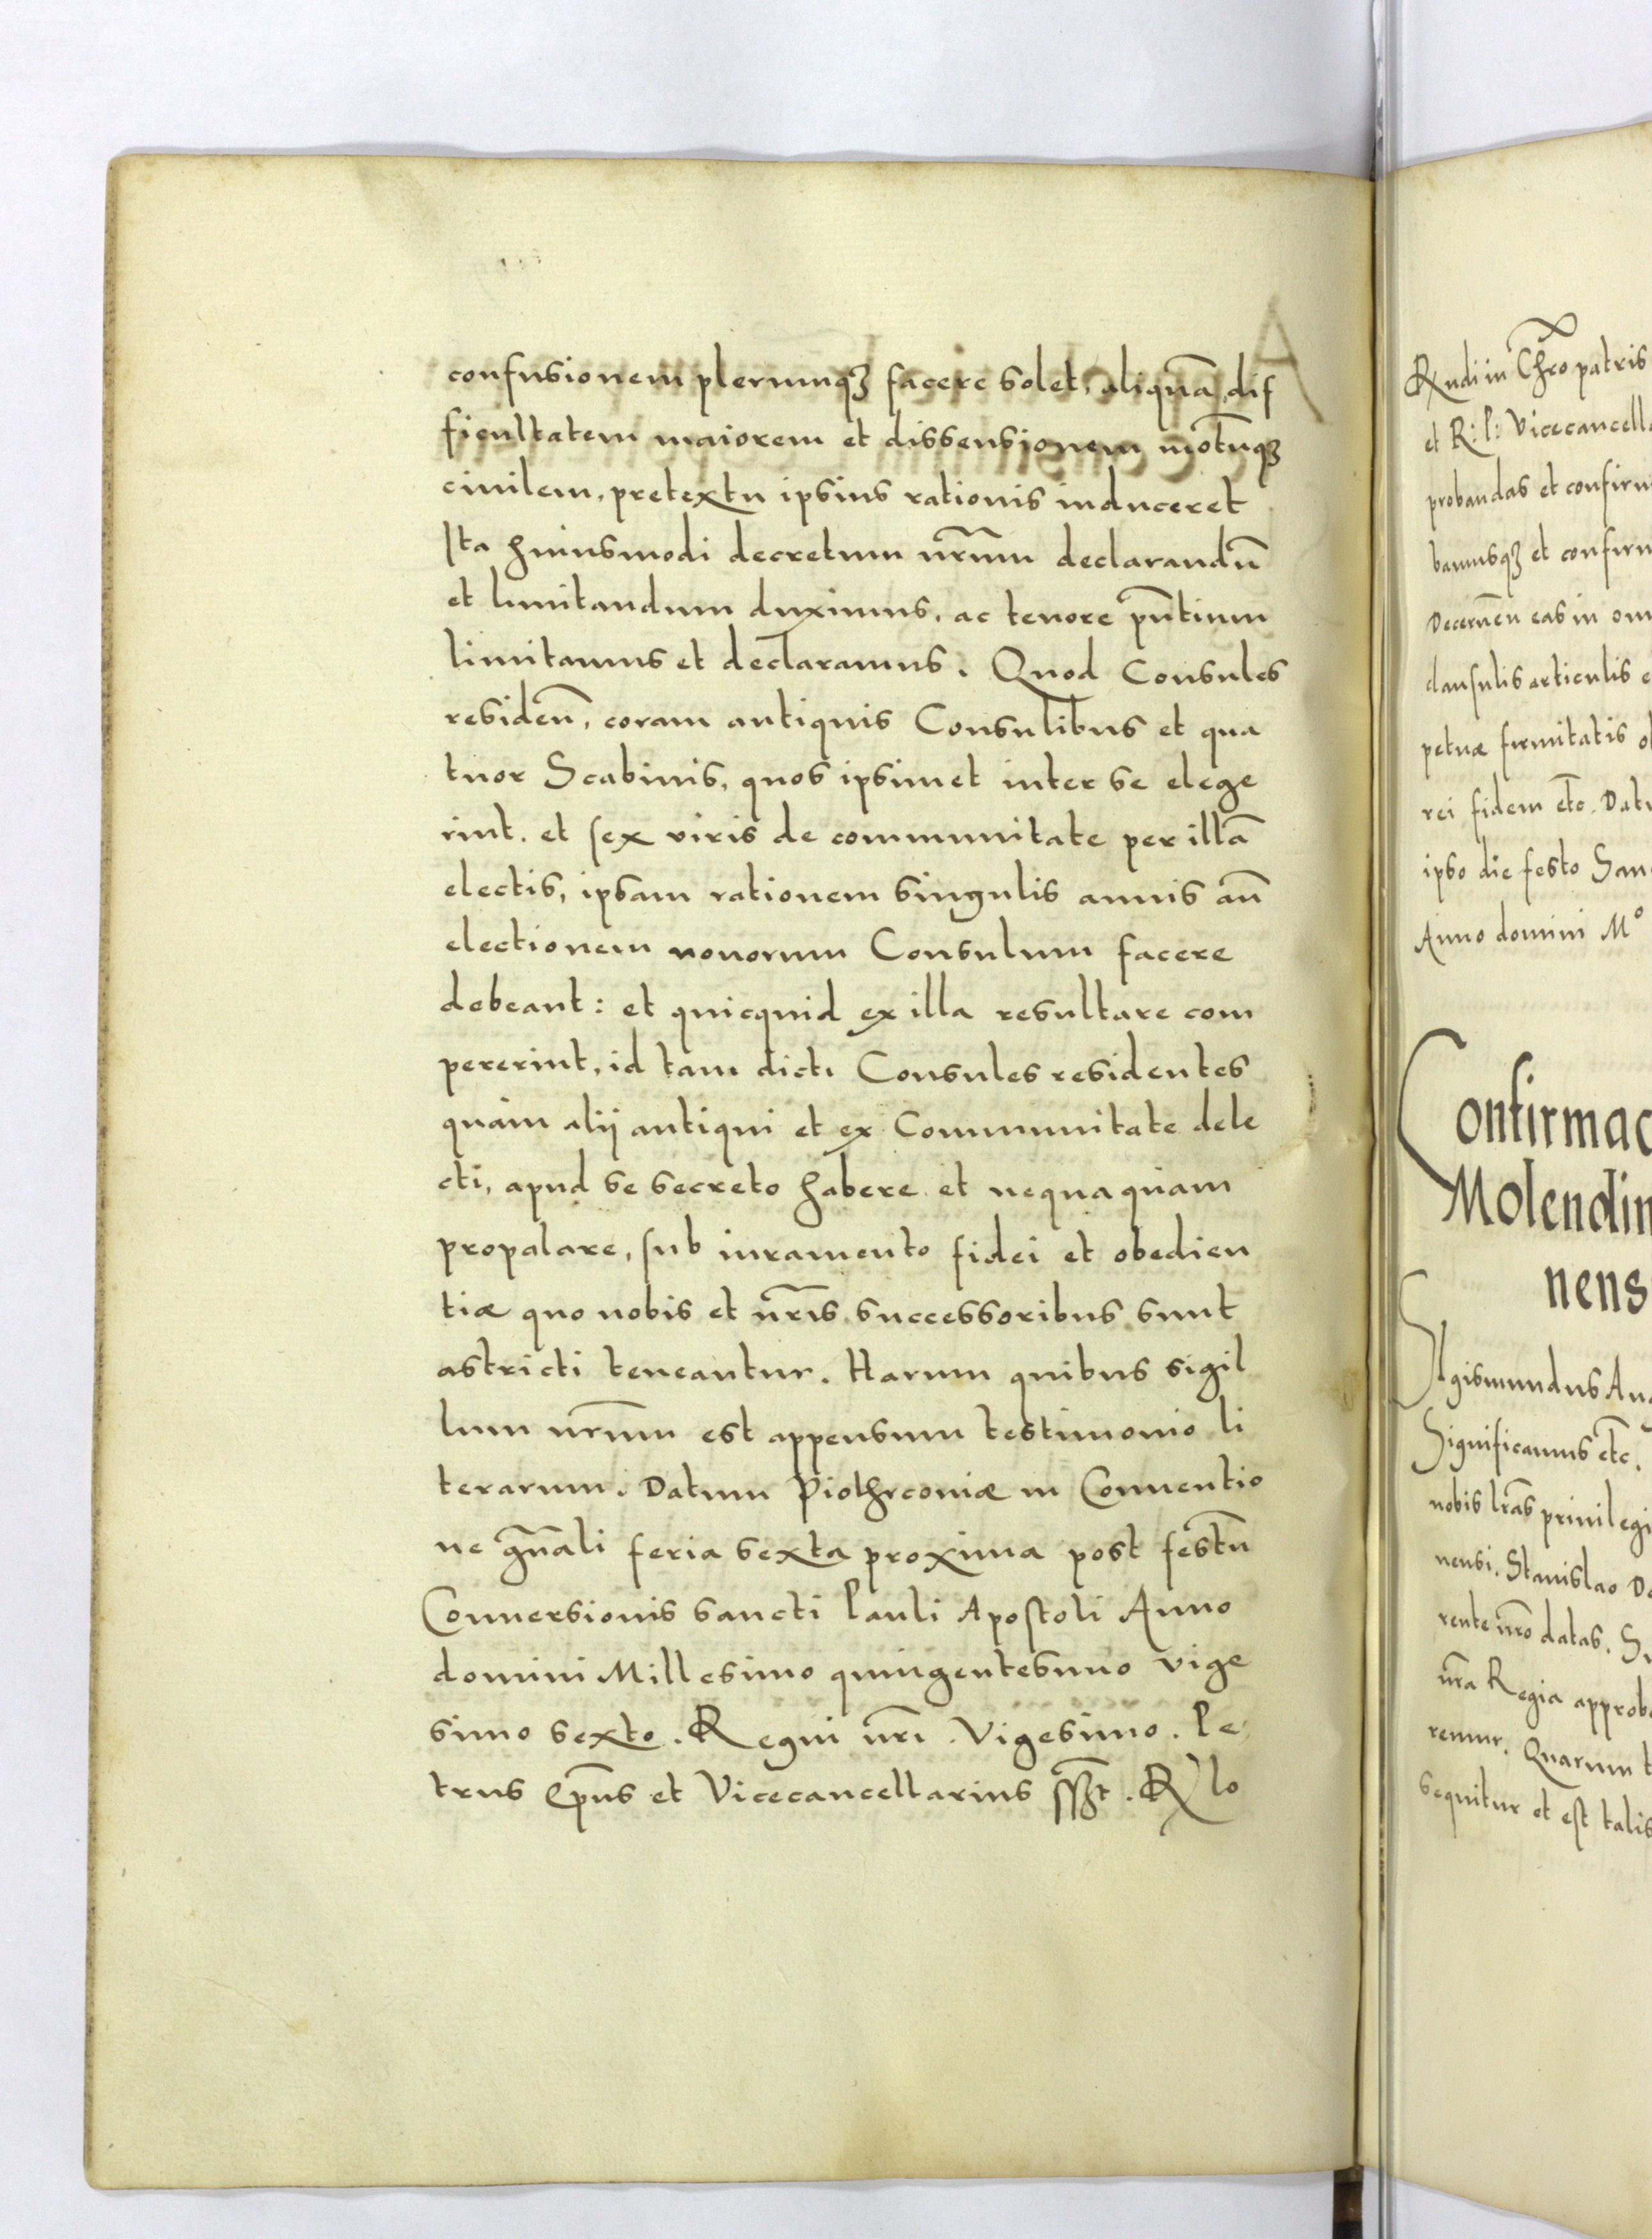 confusionem plerumq́ꝫ facere solet, aliquā dif
ficultatem maiorem et dissensionem motūqꝫ
ciuilem, pretextu ipsius rationis induceret
Ita huiusmodi decretum nr̄um declarandū
et limitandum duximus, ac tenore pn̄tium
limitamus et declaramus. Quod Consules
residen̄, coram antiquis Consulibus et qua
tuor Scabinis, quos ipsimet inter se elege
rint. et sex viris de communitate per illā
electis, ipsam rationem singulis annis an̄
electionem nouorum Consulum facere
debeant: et quicquid ex illa resultare com
pererint, id tam dicti Consules residentes
quàm alij antiqui et ex Communitate dele
cti, apud se secreto habere et nequaquam
propalare, sub iuramento fidei et obedien
tiæ quo nobis et nr̄is successoribus sunt
astricti teneantur. Harum quibus sigil
lum nr̄um est appensum testimonio li
terarum. Datum Piothrconiæ in Conuentio
ne gn̄ali feria sexta proxima post festū
Conuersionis sancti Pauli Apostoli Anno
domini Millesimo quingentesimo vige
simo sexto. Regni nr̄i. Vigesimo. Pe
trus Ep̄us et Vicecancellarius sszt. R̄ lo
Rndi in Chro patris
et R: P: Vicecancella
probandas et confirm
bamusqꝫ et confirm
Decernen̄ eas in om
clausulis articulis e
petuæ firmitatis o
rei fidem etc̄. Datu
ipso die festo San
Anno domini Mº
Confirmac
Molendin
nens
SIgismundus Au
Significamus etc̄.
nobis lr̄as priuilegi
nensi. Stanislao Da
rente nr̄o datas. Su
nr̄a Regia approba
remur. Quarum t
sequitur et est talis